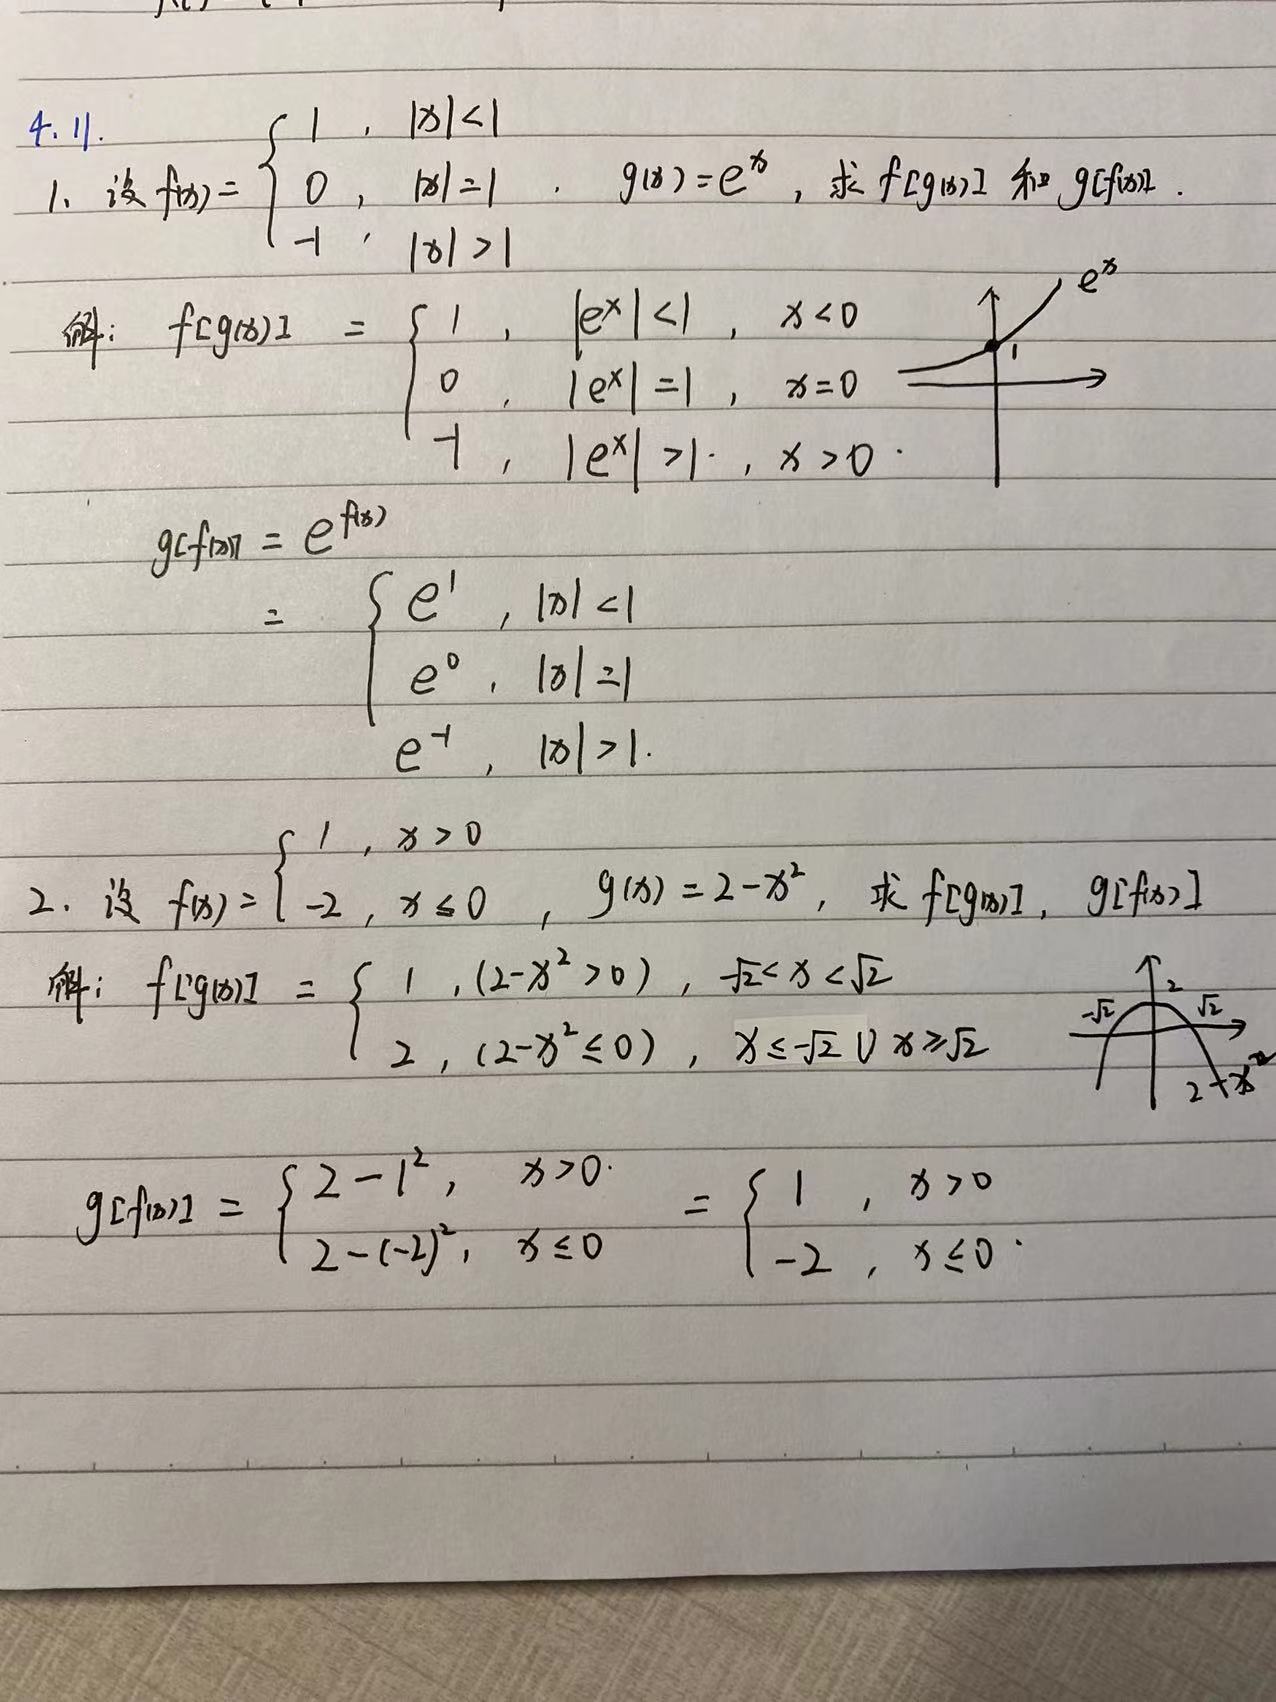 4.11.
1、设 f(x) = { 1 , |x|<1
0 , |x|=1 . g(x)=e^x , 求 f[g(x)] 和 g[f(x)] .
-1 , |x|>1
解: f[g(x)] = { 1 , |e^x|<1 , x<0
0 , |e^x|=1 , x=0
-1 , |e^x|>1 , x>0 .
e^x
1
g[f(x)] = e^f(x)
= { e^1 , |x|<1
e^0 , |x|=1
e^-1 , |x|>1.
2. 设 f(x) = { 1 , x>0
-2 , x≤0 , g(x)=2-x^2, 求 f[g(x)], g[f(x)]
解: f[g(x)] = { 1 , (2-x^2>0) , -√2<x<√2
2 , (2-x^2≤0) , x≤-√2 U x≥√2
-√2 2 √2
2-x^2
g[f(x)] = { 2-1^2, x>0. = { 1 , x>0
2-(-2)^2, x≤0 -2 , x≤0 .